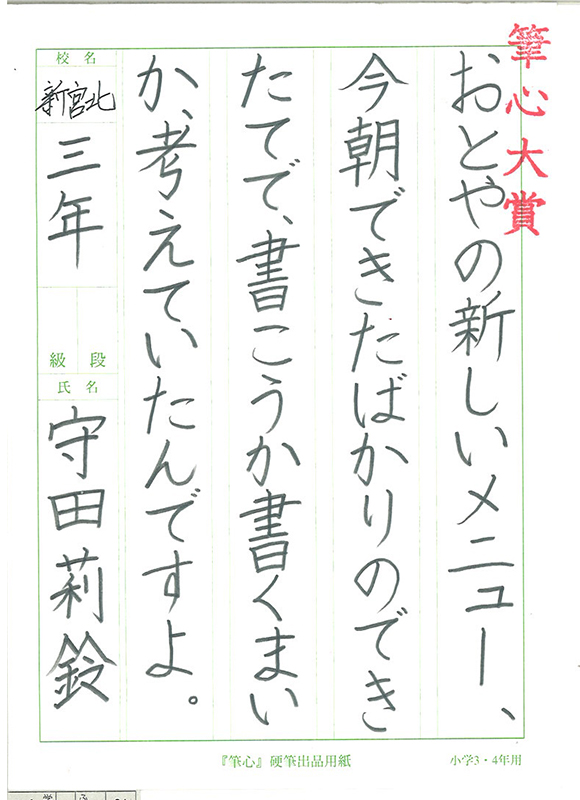 筆心大賞
おとやの新しいメニュー、
今朝できたばかりのでき
たてで、書こうか書くまい
か、考えていたんですよ。
校名
新宮北
三年
段級
氏名
守田莉鈴
『筆心』硬筆出品用紙
小学3・4年用